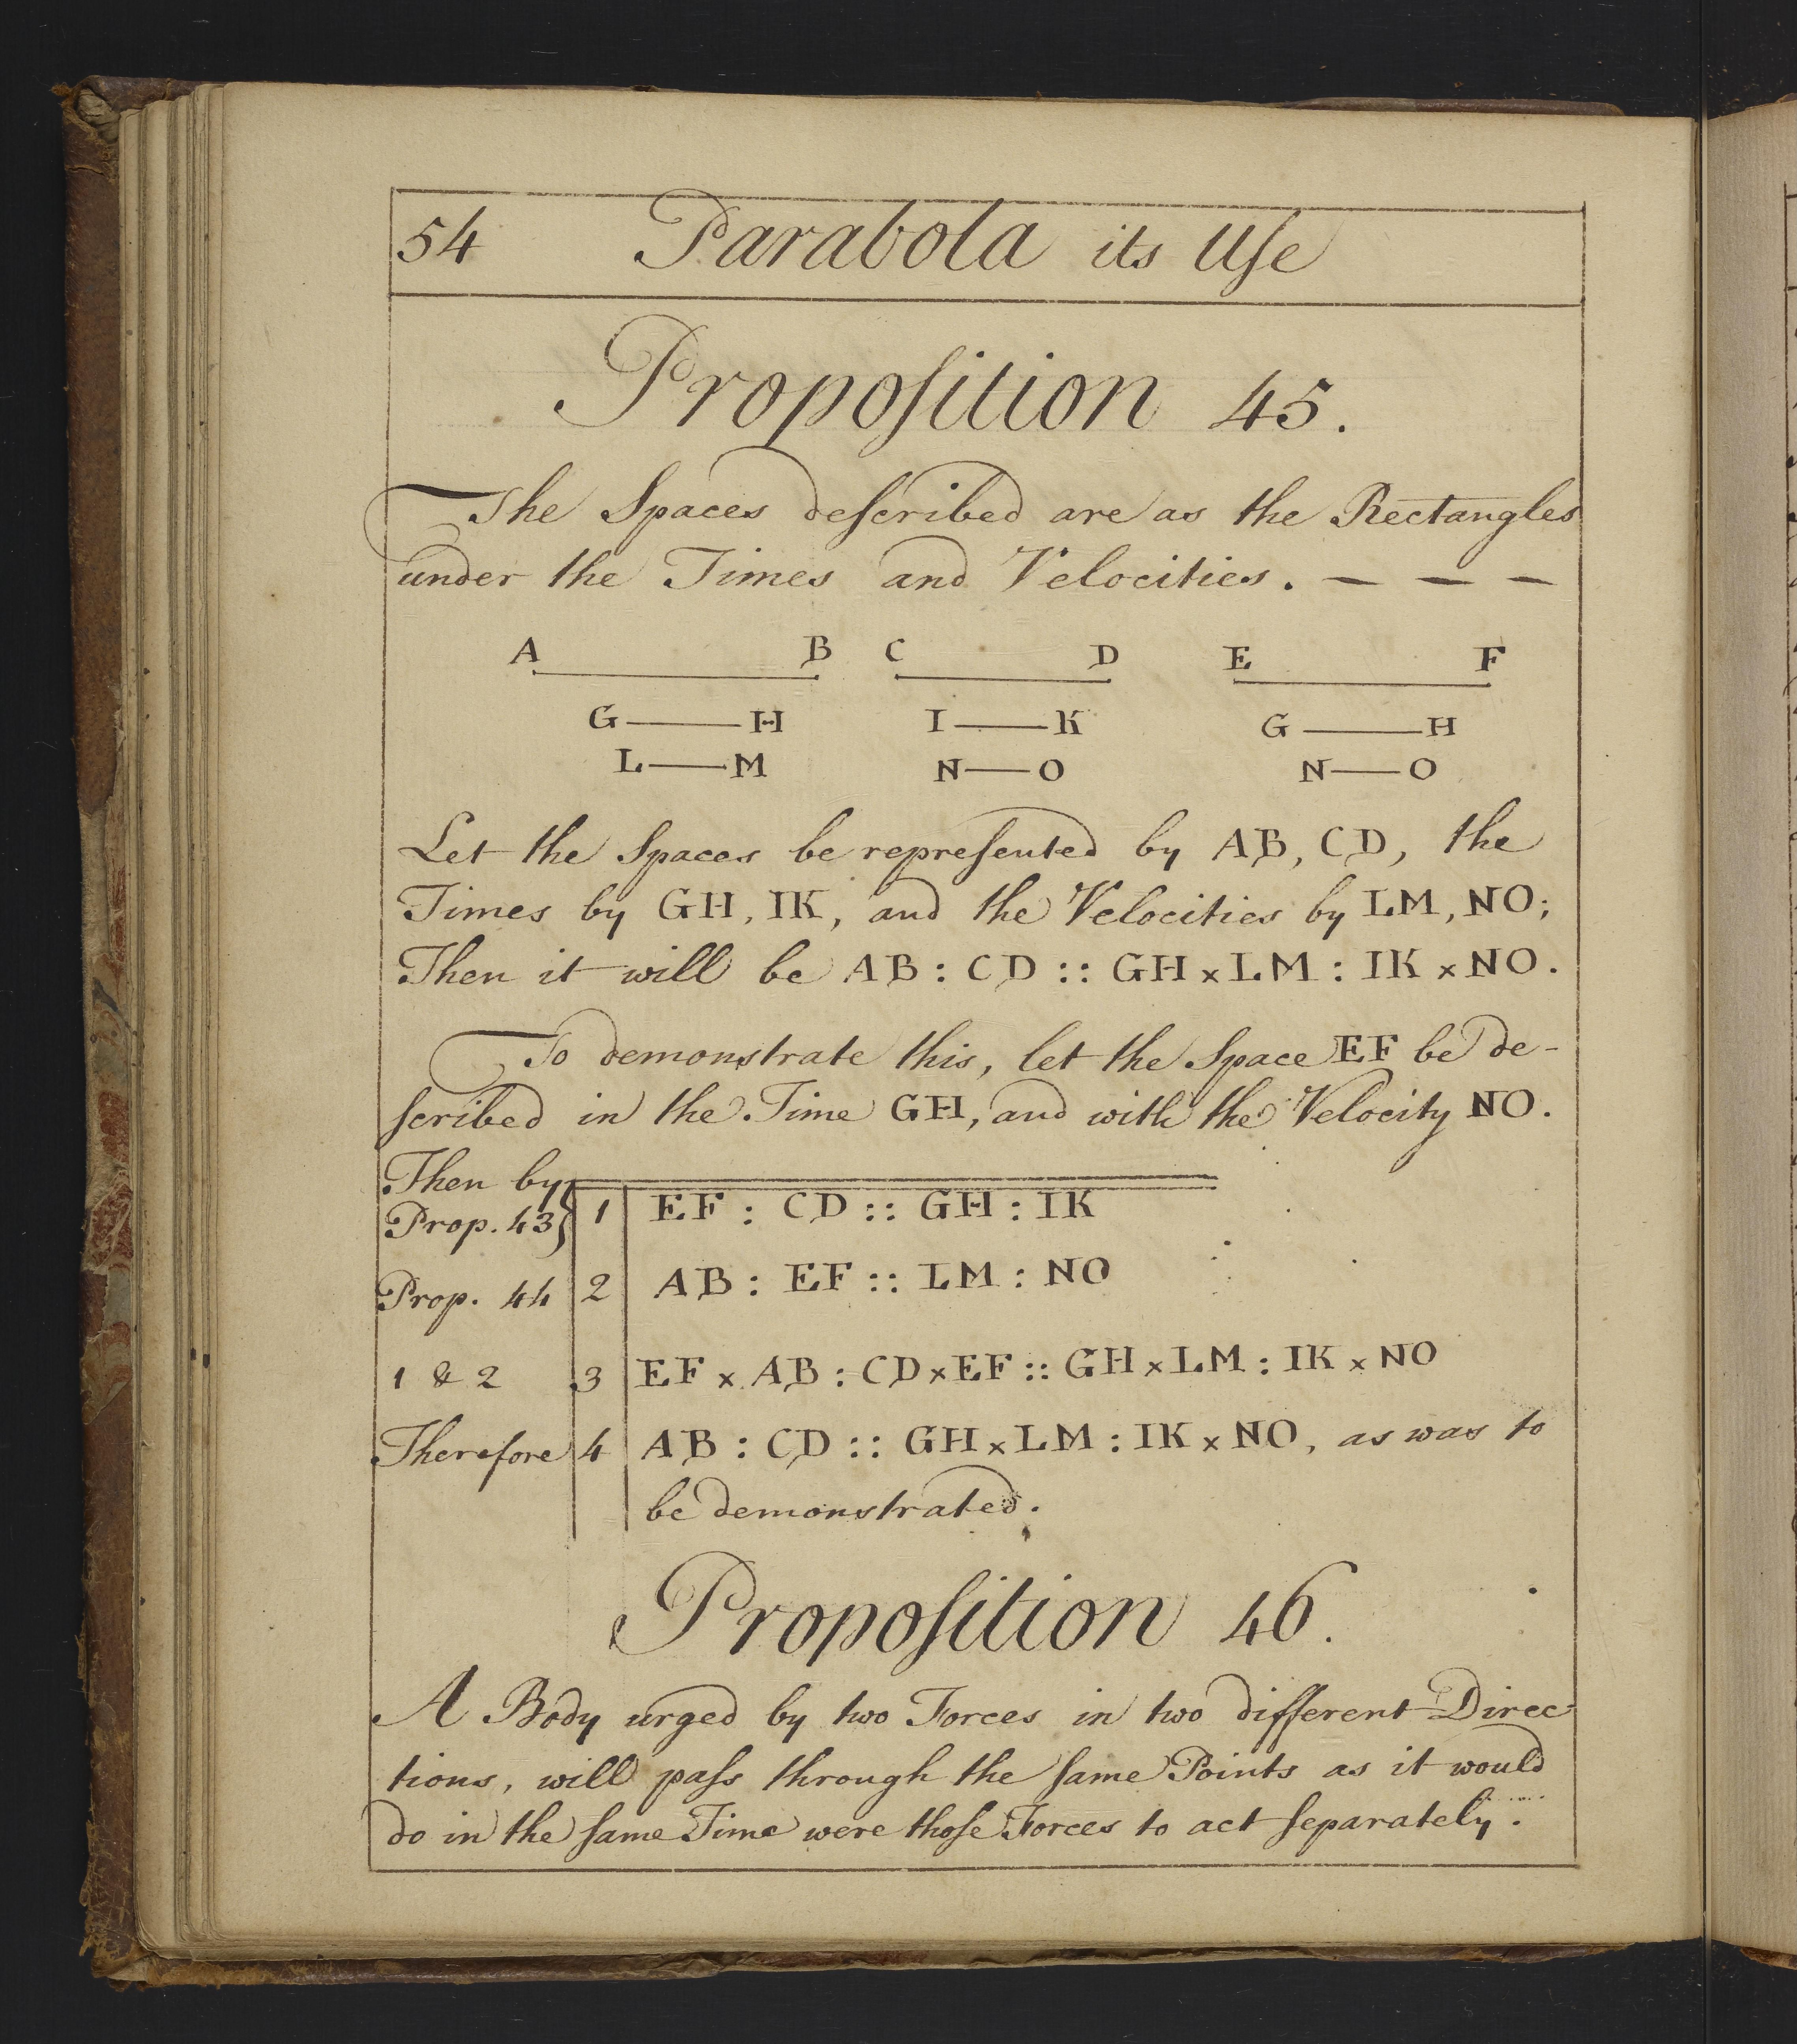 54 Parabola its Uſe
Propoſition 45.
The Spaces deſcribed are as the Rectangles
under the Times and Velocities. — — —
A B C D E F
G——H I——K G——H
L——M N——O N——O
Let the Spaces be repreſented by AB, CD, the
Times by GH, IK, and the Velocities by LM, NO;
Then it will be AB : CD :: GH × LM : IK × NO.
To demonstrate this, let the Space EF be de-
ſcribed in the Time GH, and with the Velocity NO.
Then by
Prop. 43} 1 EF : CD :: GH : IK
Prop. 44 2 AB : EF :: LM : NO
1 & 2 3 EF × AB : CD × EF :: GH × LM : IK × NO
Therefore 4 AB : CD :: GH × LM : IK × NO, as was to
be demonstrated.
Propoſition 46.
A Body urged by two Forces in two different Direc-
tions, will paſs through the ſame Points as it would
do in the ſame Time were thoſe Forces to act ſeparately.